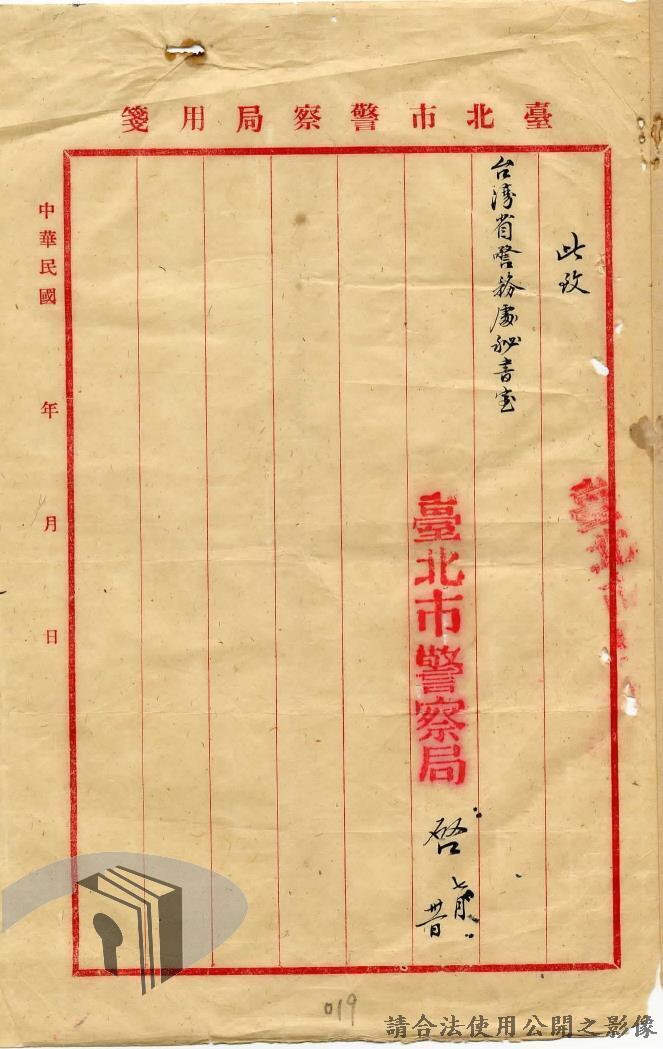 臺北市警察局用箋
此致
台灣省警務處秘書室
臺北市警察局
啓
七月
中華民國 年 月 日
019
請合法使用公開之影像